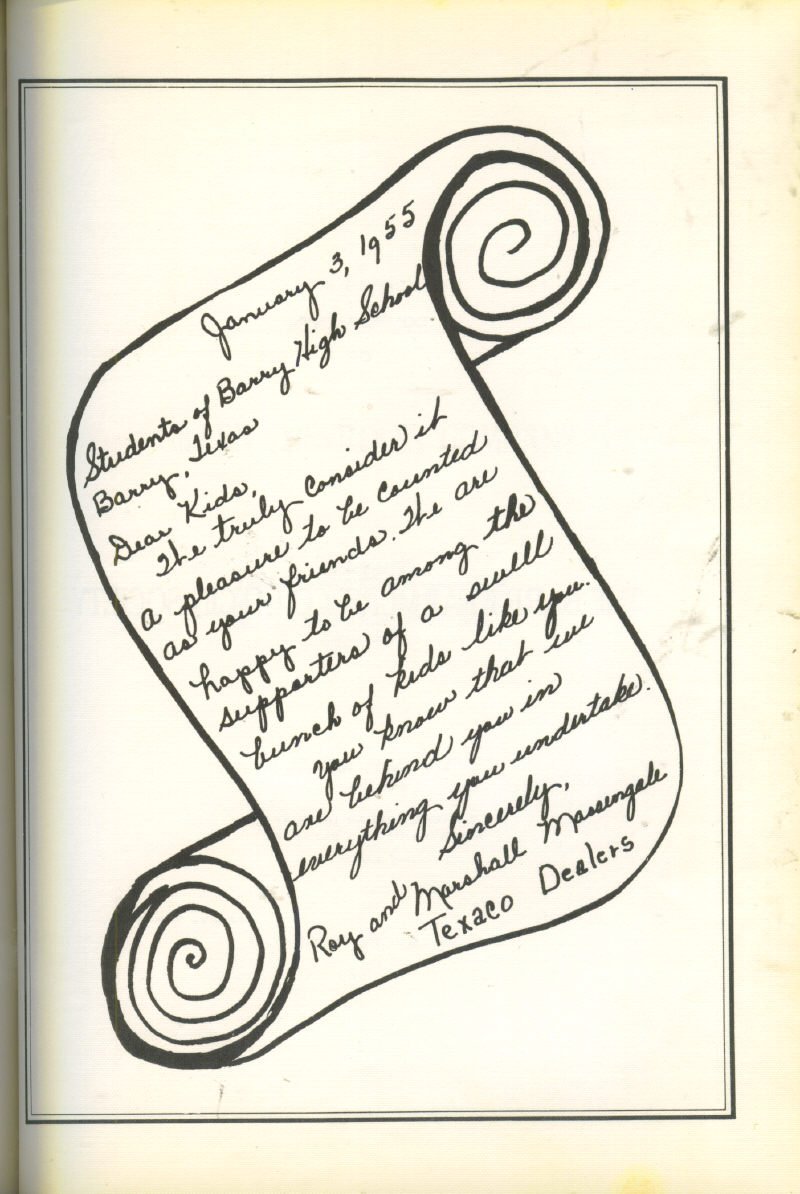 January 3, 1955
Students of Barry High School
Barry, Texas
Dear Kids,
We truly consider it
a pleasure to be counted
as your friends. We are
happy to be among the
supporters of a swell
bunch of kids like you.
You know that we
are behind you in
everything you undertake.
Sincerely,
Roy and Marshall Massengale
Texaco Dealers